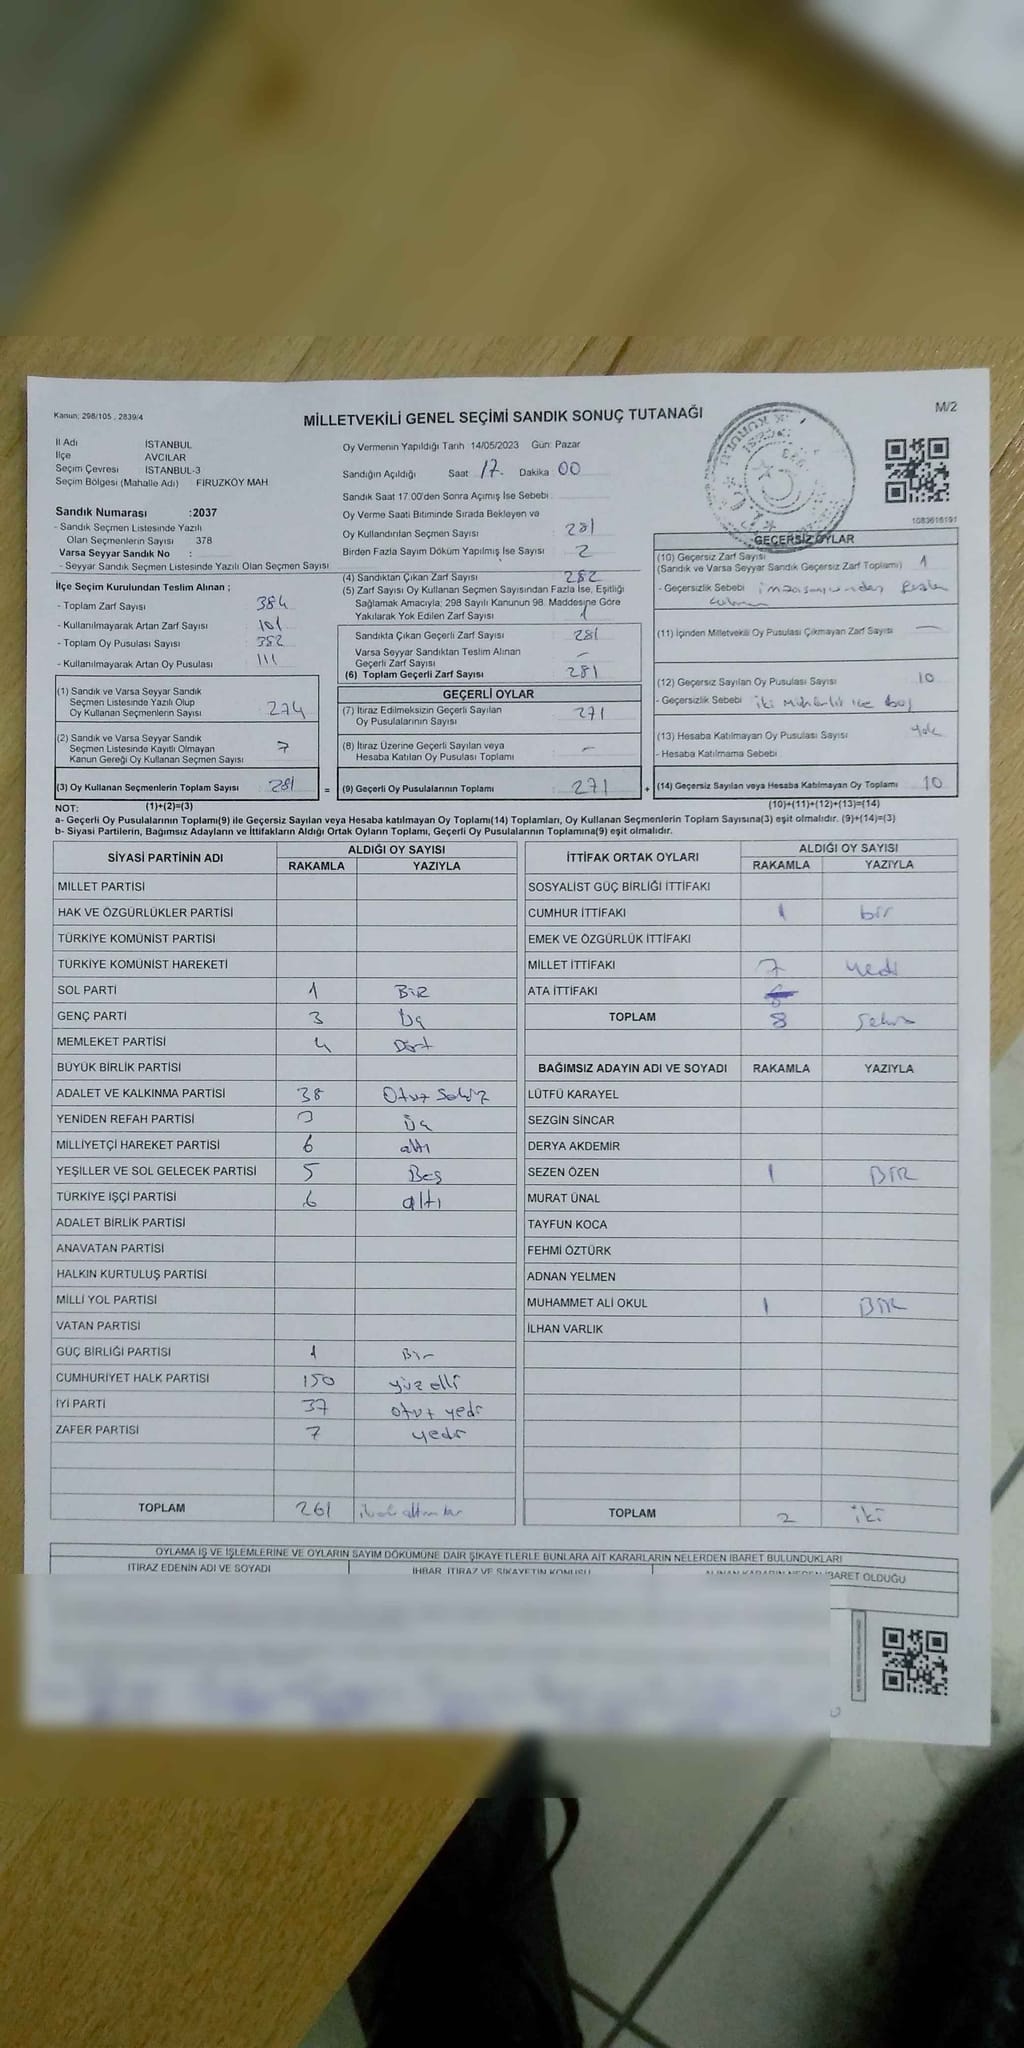 Kanun; 298/105 , 2839/4
MİLLETVEKİLİ GENEL SEÇİMİ SANDIK SONUÇ TUTANAĞI
M/2
İl Adı İSTANBUL
İlçe AVCILAR
Seçim Çevresi İSTANBUL-3
Seçim Bölgesi (Mahalle Adı) FİRUZKÖY MAH
Sandık Numarası :2037
- Sandık Seçmen Listesinde Yazılı
Olan Seçmenlerin Sayısı 378
Varsa Seyyar Sandık No :
- Seyyar Sandık Seçmen Listesinde Yazılı Olan Seçmen Sayısı
Oy Vermenin Yapıldığı Tarih 14/05/2023 Gün: Pazar
Sandığın Açıldığı Saat 17. Dakika 00
Sandık Saat 17.00'den Sonra Açımış İse Sebebi
Oy Verme Saati Bitiminde Sırada Bekleyen ve
Oy Kullandırılan Seçmen Sayısı 281
Birden Fazla Sayım Döküm Yapılmış İse Sayısı 2
1083616191
İlçe Seçim Kurulundan Teslim Alınan ;
- Toplam Zarf Sayısı 384
- Kullanılmayarak Artan Zarf Sayısı 101
- Toplam Oy Pusulası Sayısı 392
- Kullanılmayarak Artan Oy Pusulası 111
(1) Sandık ve Varsa Seyyar Sandık
Seçmen Listesinde Yazılı Olup
Oy Kullanan Seçmenlerin Sayısı 274
(2) Sandık ve Varsa Seyyar Sandık
Seçmen Listesinde Kayıtlı Olmayan
Kanun Gereği Oy Kullanan Seçmen Sayısı 7
(3) Oy Kullanan Seçmenlerin Toplam Sayısı 281 =
(4) Sandıktan Çıkan Zarf Sayısı 282
(5) Zarf Sayısı Oy Kullanan Seçmen Sayısından Fazla İse, Eşitliği
Sağlamak Amacıyla; 298 Sayılı Kanunun 98. Maddesine Göre
Yakılarak Yok Edilen Zarf Sayısı 1
Sandıkta Çıkan Geçerli Zarf Sayısı 281
Varsa Seyyar Sandıktan Teslim Alınan
Geçerli Zarf Sayısı -
(6) Toplam Geçerli Zarf Sayısı 281
GEÇERLİ OYLAR
(7) İtiraz Edilmeksizin Geçerli Sayılan
Oy Pusulalarının Sayısı 271
(8) İtiraz Üzerine Geçerli Sayılan veya
Hesaba Katılan Oy Pusulası Toplamı -
(9) Geçerli Oy Pusulalarının Toplamı 271 +
GEÇERSİZ OYLAR
(10) Geçersiz Zarf Sayısı
(Sandık ve Varsa Seyyar Sandık Geçersiz Zarf Toplamı) 1
- Geçersizlik Sebebi imza sayısından fazla
(11) İçinden Milletvekili Oy Pusulası Çıkmayan Zarf Sayısı —
(12) Geçersiz Sayılan Oy Pusulası Sayısı 10
- Geçersizlik Sebebi iki mühürlü ve boş
(13) Hesaba Katılmayan Oy Pusulası Sayısı yok
- Hesaba Katılmama Sebebi
(14) Geçersiz Sayılan veya Hesaba Katılmayan Oy Toplamı 10
NOT: (1)+(2)=(3) (10)+(11)+(12)+(13)=(14)
a- Geçerli Oy Pusulaları Toplamı(9) ile Geçersiz Sayılan veya Hesaba katılmayan Oy Toplamı(14) Toplamları, Oy Kullanan Seçmenlerin Toplam Sayısına(3) eşit olmalıdır. (9)+(14)=(3)
b- Siyasi Partilerin, Bağımsız Adayların ve İttifakların Aldığı Ortak Oyların Toplamı, Geçerli Oy Pusulalarının Toplamına(9) eşit olmalıdır.
SİYASİ PARTİNİN ADI ALDIĞI OY SAYISI
RAKAMLA YAZIYLA
MİLLET PARTİSİ
HAK VE ÖZGÜRLÜKLER PARTİSİ
TÜRKİYE KOMÜNİST PARTİSİ
TÜRKİYE KOMÜNİST HAREKETİ
SOL PARTİ 1 BİR
GENÇ PARTİ 3 Üç
MEMLEKET PARTİSİ 4 Dört
BÜYÜK BİRLİK PARTİSİ
ADALET VE KALKINMA PARTİSİ 38 Otuz Sekiz
YENİDEN REFAH PARTİSİ 3 Üç
MİLLİYETÇİ HAREKET PARTİSİ 6 altı
YEŞİLLER VE SOL GELECEK PARTİSİ 5 Beş
TÜRKİYE İŞÇİ PARTİSİ 6 altı
ADALET BİRLİK PARTİSİ
ANAVATAN PARTİSİ
HALKIN KURTULUŞ PARTİSİ
MİLLİ YOL PARTİSİ
VATAN PARTİSİ
GÜÇ BİRLİĞİ PARTİSİ 1 Bir
CUMHURİYET HALK PARTİSİ 150 yüz elli
İYİ PARTİ 37 otuz yedi
ZAFER PARTİSİ 7 yedi
TOPLAM 261
İTTİFAK ORTAK OYLARI ALDIĞI OY SAYISI
RAKAMLA YAZIYLA
SOSYALİST GÜÇ BİRLİĞİ İTTİFAKI
CUMHUR İTTİFAKI 1 bir
EMEK VE ÖZGÜRLÜK İTTİFAKI
MİLLET İTTİFAKI 7 yedi
ATA İTTİFAKI
TOPLAM 8 Sekiz
BAĞIMSIZ ADAYIN ADI VE SOYADI RAKAMLA YAZIYLA
LÜTFÜ KARAYEL
SEZGİN SİNCAR
DERYA AKDEMİR
SEZEN ÖZEN 1 BİR
MURAT ÜNAL
TAYFUN KOCA
FEHMİ ÖZTÜRK
ADNAN YELMEN
MUHAMMET ALİ OKUL 1 BİR
İLHAN VARLIK
TOPLAM 2 iki
OYLAMA İŞ VE İŞLEMLERİNE VE OYLARIN SAYIM DÖKÜMÜNE DAİR ŞİKAYETLERLE BUNLARA AİT KARARLARIN NELERDEN İBARET BULUNDUKLARI
İTİRAZ EDENİN ADI VE SOYADI İHBAR, İTİRAZ VE ŞİKAYETİN KONUSU ALINAN KARARIN NEDEN İBARET OLDUĞU